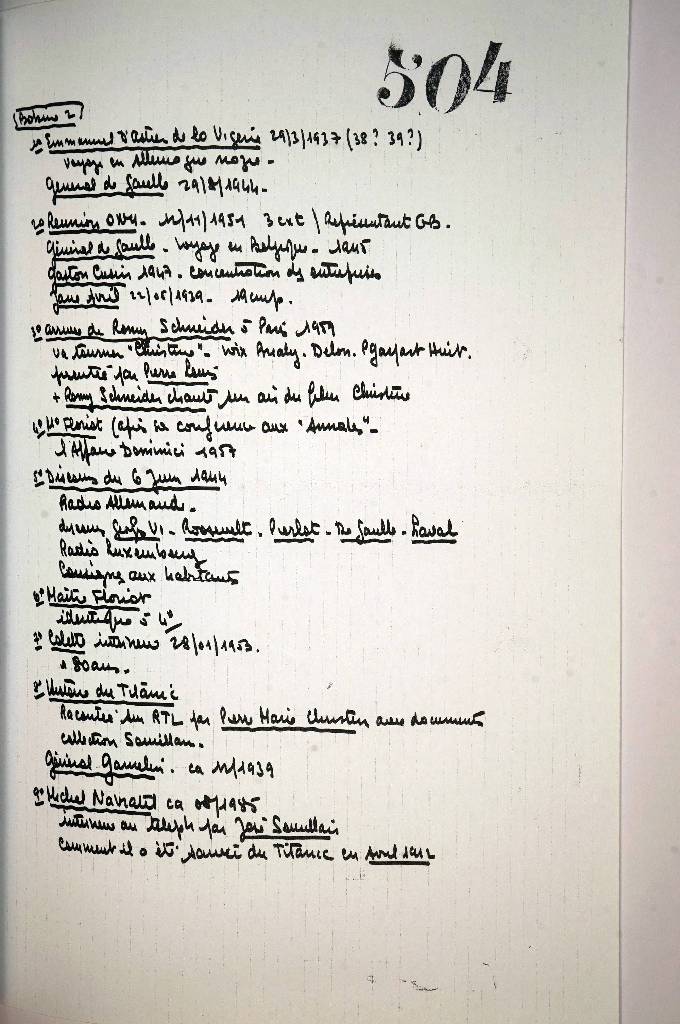 504
Bobine 2
1° Emmanuel D'astier de la Vigerie 29/3/1937 (38? 39?)
voyage en Allemagne nazie -
Général de Gaulle 29/8/1944 -
2° Réunion ONU - 12/11/1951 3 ext / Représentant G.B.
Général de Gaulle - Voyage en Belgique - 1945
Gaston Cusin 1947 - concentration des entreprises
Jane Avril 22/05/1939 -
3° arrivée de Romy Schneider à Paris 1959
va tourner "Christine" - Delon.
présentée par Pierre
+ Romy Schneider chante un air du film Christine
4° M° Floriot (après sa conférence aux "Annales" -
l'Affaire Dominici 1957
5° Discours du 6 Juin 1944
Radio Allemande -
discours George VI - Roosevelt - Pierlot - De Gaulle - Laval
Radio Luxembourg
Consignes aux habitants
6° Maître Floriot
identique à 4°
7° Colette interview 28/01/1953.
80 ans.
8° Histoire du Titanic
Racontée sur RTL par Pierre Marie Christin avec documents
collection Sourillan.
Général Gamelin. ca 12/1939
9° Michel Navratil ca 08/1985
interview au téléph par José Sourillan
Comment il a été sauvé du Titanic en Avril 1912